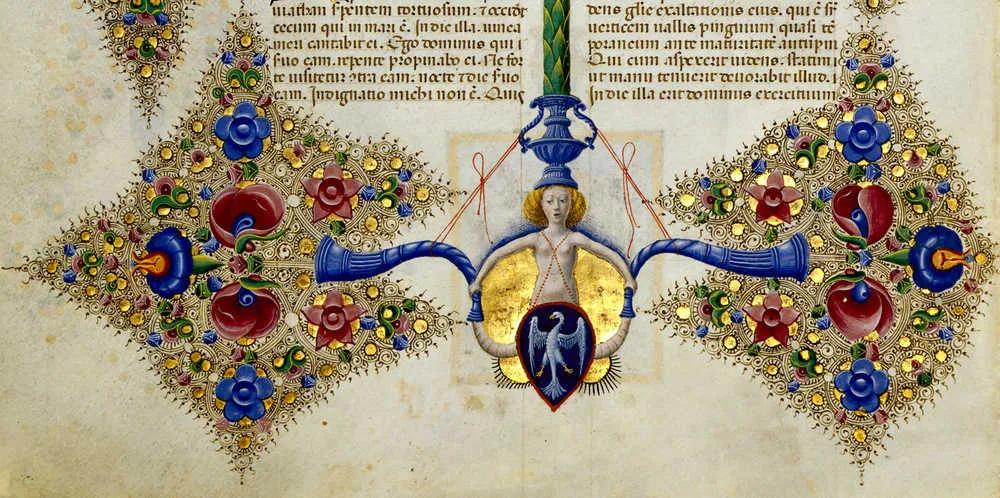 niathan s̄pentem tortuosum: ⁊ occidet
cetum qui in mari ē. In die illa. uinea
meri cantabit ei. Ego dominus qui s̄
suo eam. repente propinabo ei. Ne for
te uisitetur ɔtra eam. nocte ⁊ die s̄uo
eam. Indignatio michi non ē. Quis
dens gl̄ie exaltationis eius. qui ē sr̄
verticem uallis pinguium quasi tē
poraneum ante maturitatē autūpni
Qui cum aspexerit uidens. statim
ut manu tenuerit deuorabit illud.
In die illa erit dominus exercituum